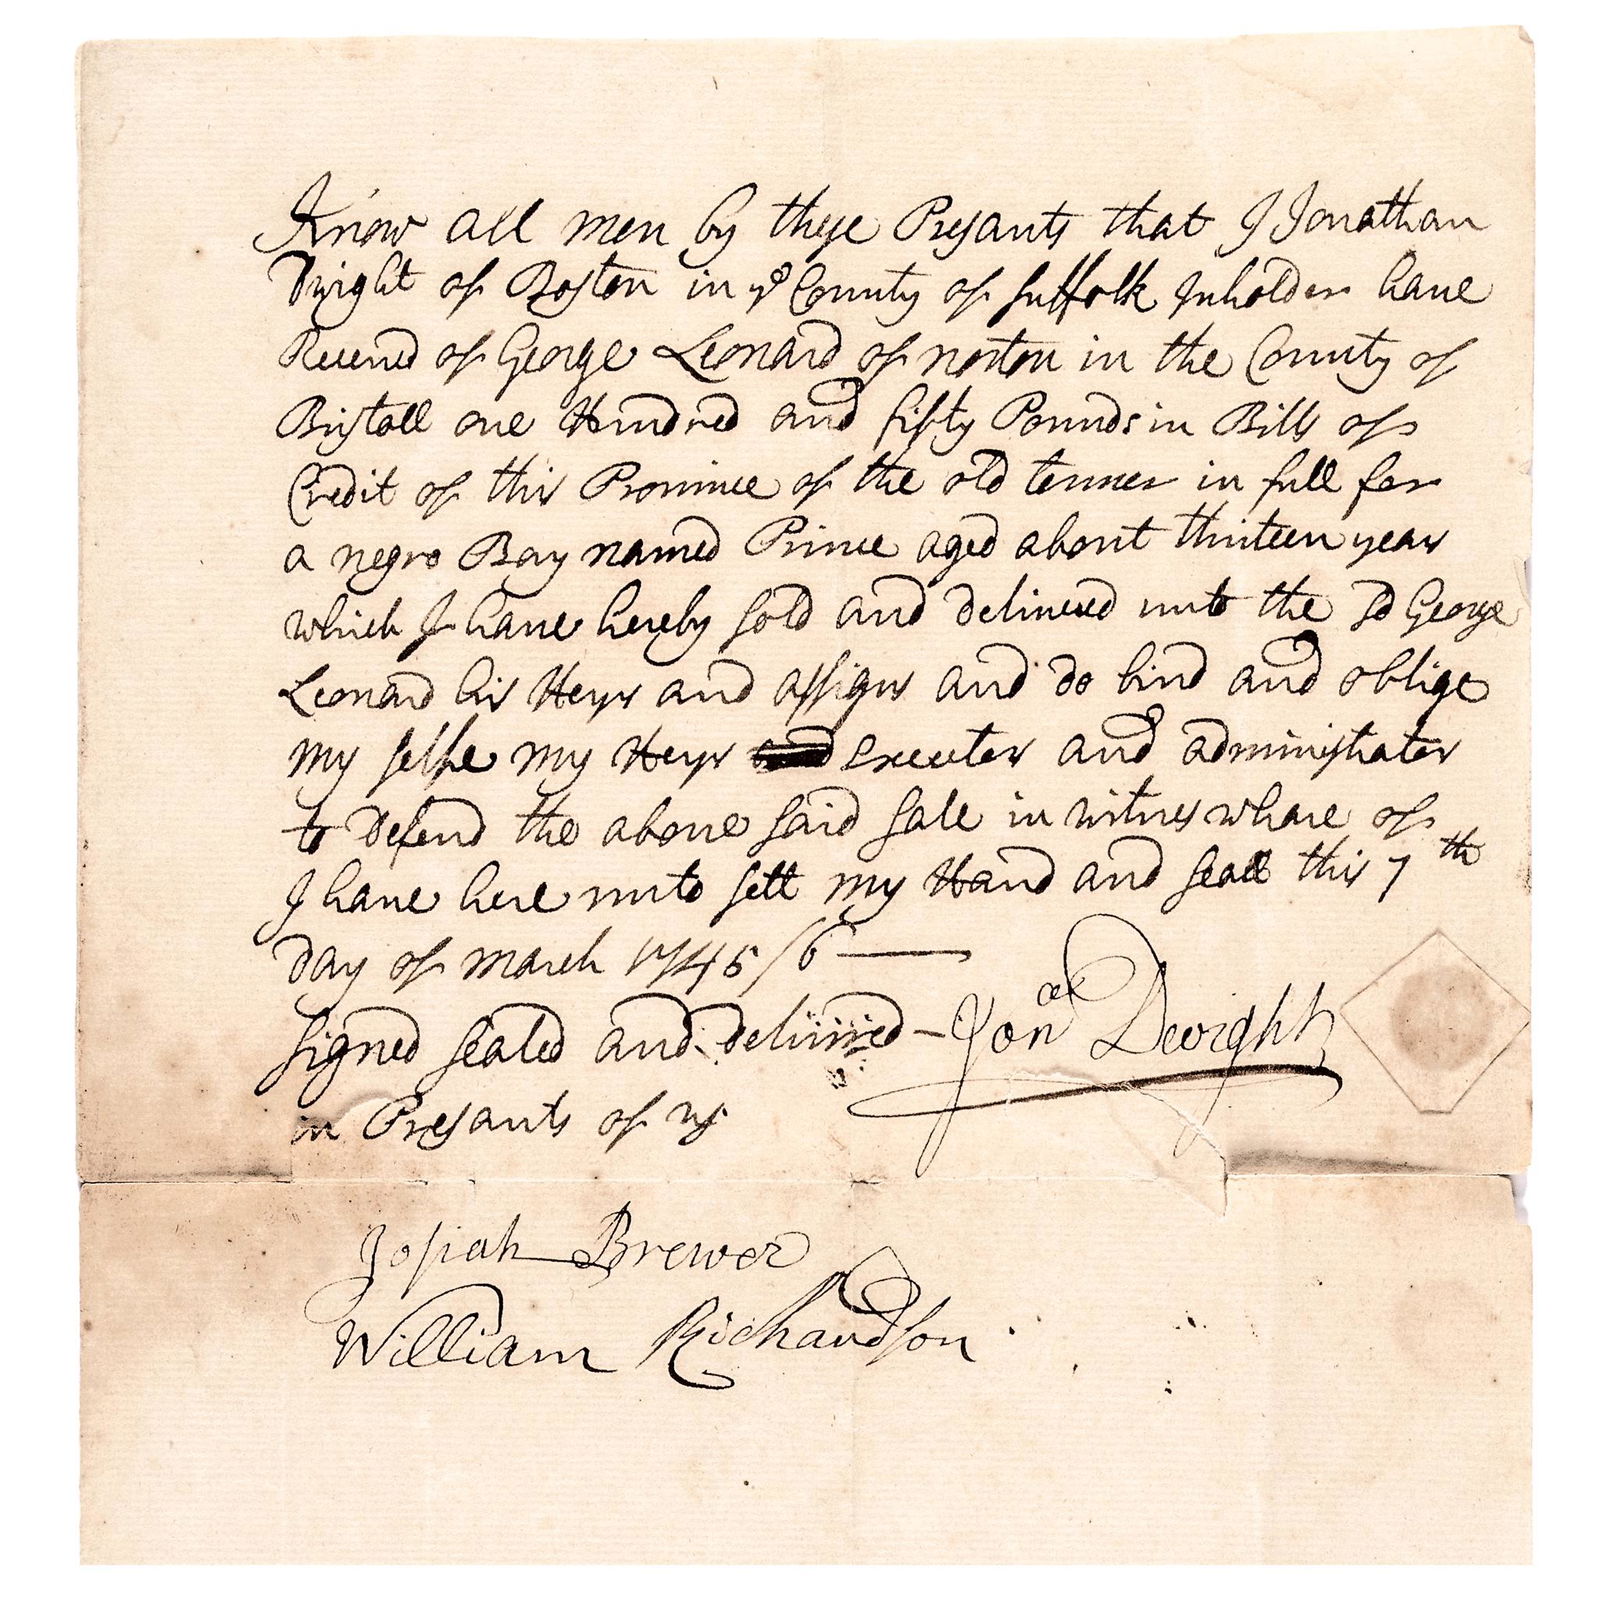 Know all men by these Presants that I Jonathan
Dwight of Boston in ye County of Suffolk Inholder have
Received of George Leonard of norton in the County of
Bristoll one Hundred and fifty Pounds in Bills of
Credit of this Province of the old tenner in full for
a negro Boy named Prince aged about thirteen years
which I have hereby sold and delivered unto the sd George
Leonard his Heyrs and assigns and do bind and oblige
my selfe my Heyrs and executers and administrators
to Defend the above said sale in witnes whare of
I have here unto sett my Hand and seall this 7th
Day of march 1745/6
signed sealed and delivired - Jonan Dwight
in Presants of us
Josiah Brewer
William Richardson